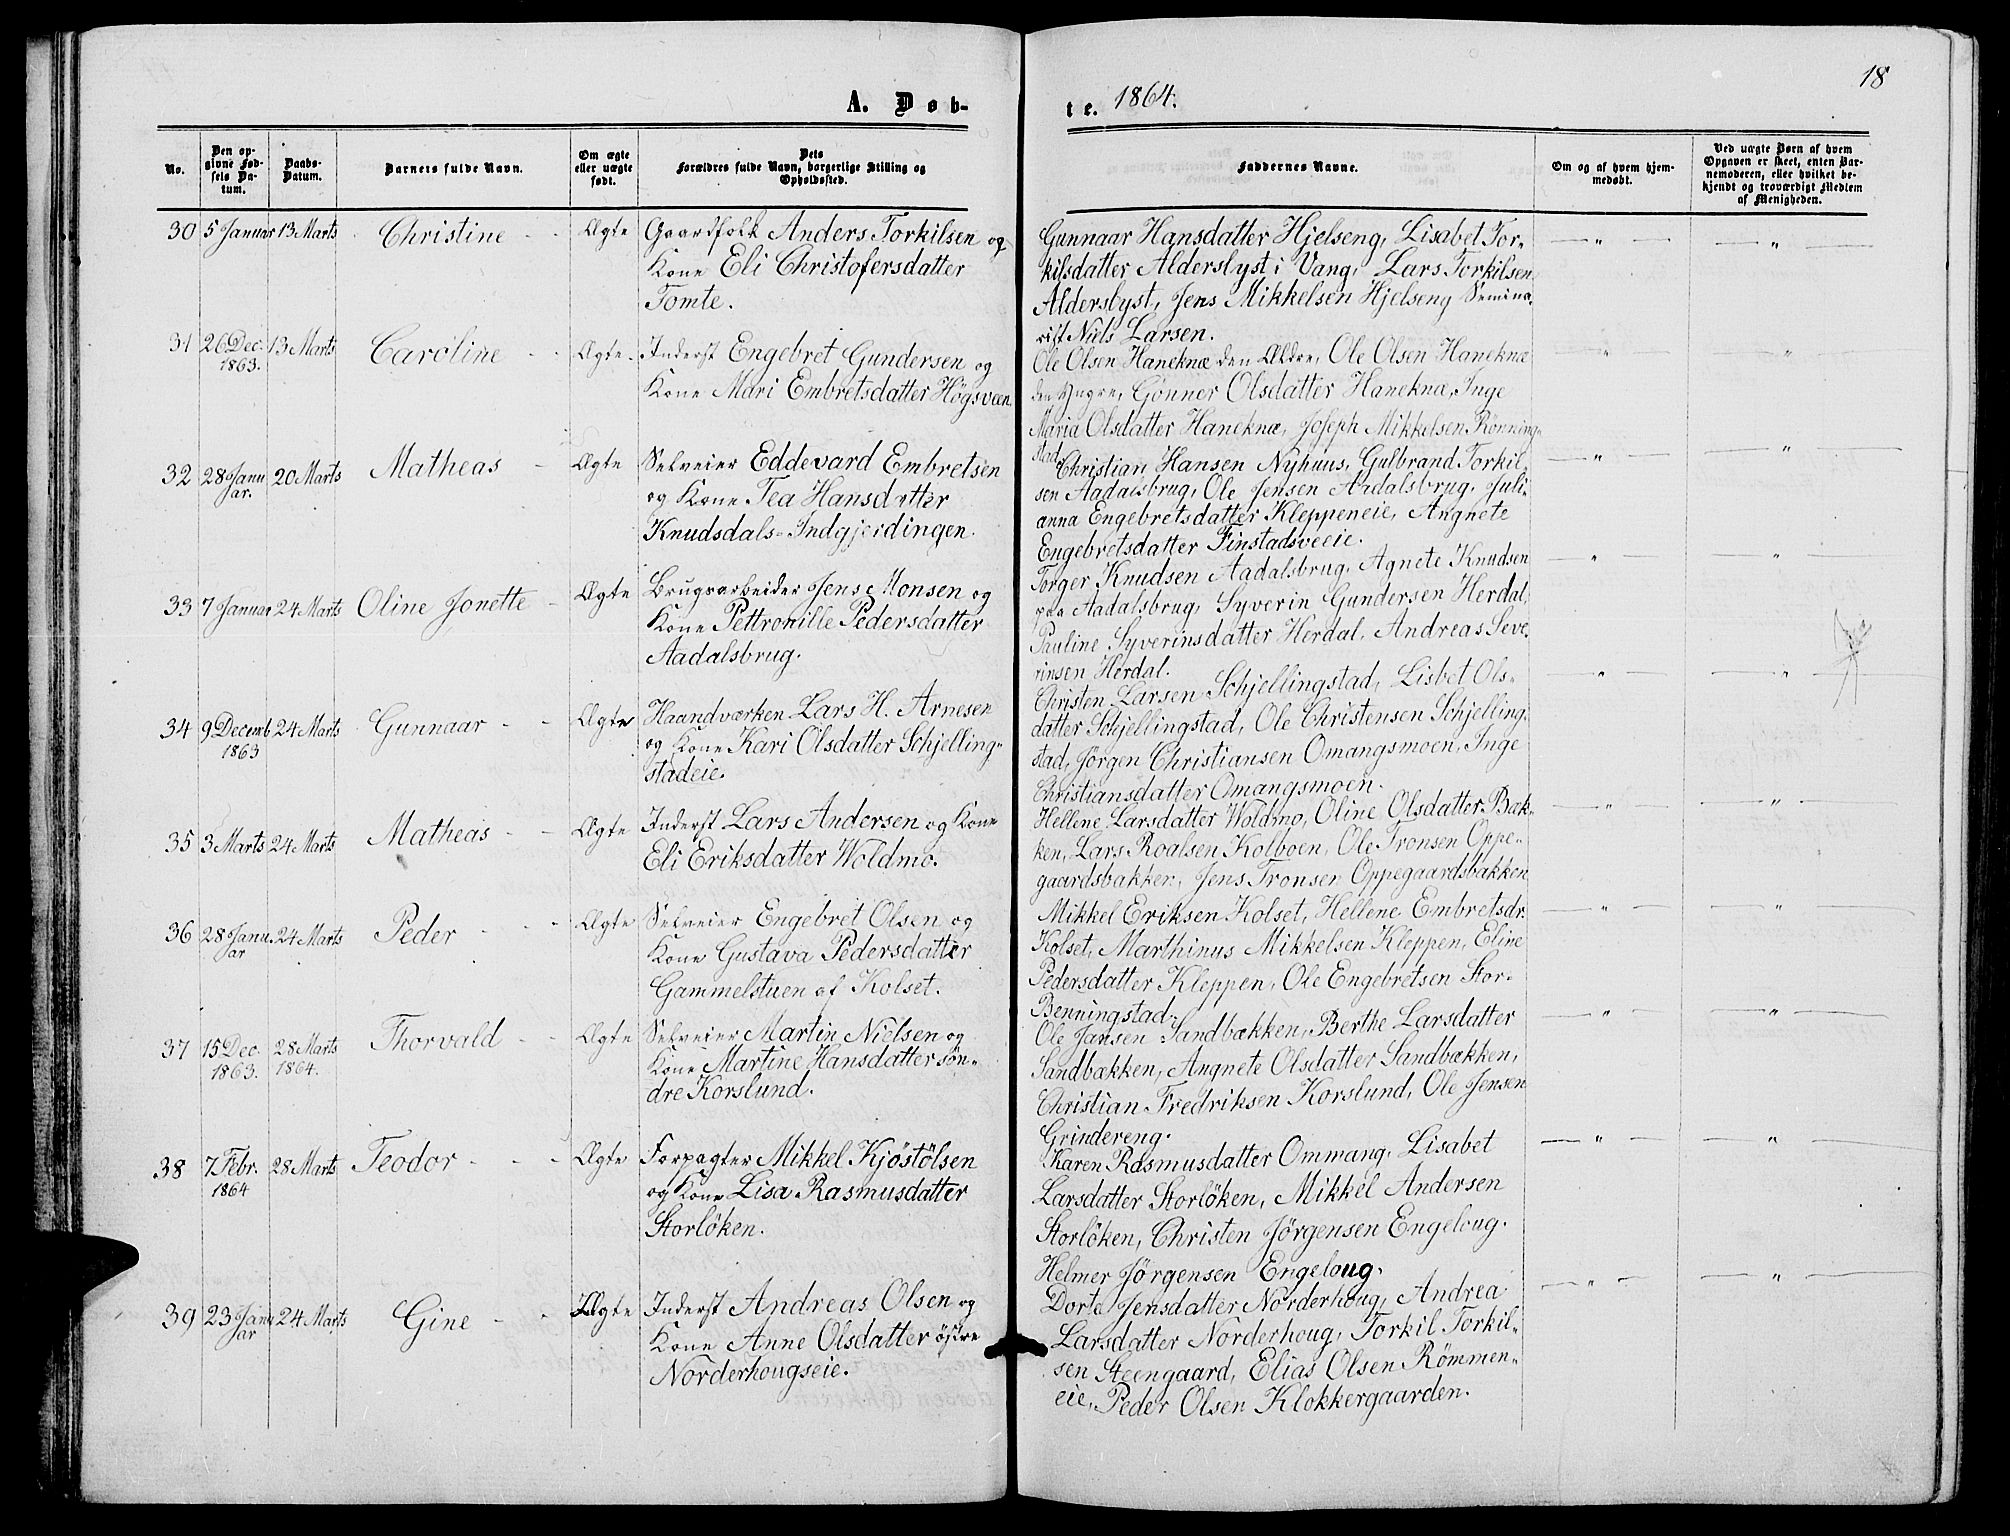 18
A. Døb-
te. 1864.
No.
Den op-
givne Fød-
sels Da-
tum.
Daabs-
Datum.
Barnets fulde Navn.
Om ægte
eller uægte
født.
Dets
Forældres fulde Navn, borgerlige Stilling og
Opholdssted.
Faddernes Navne.
Om og af hvem hjem-
medøbt.
Ved uægte Børn af hvem
Opgaven er skeet, enten Bar-
nemoderen, eller hvilket be-
kjendt og troværdigt Medlem
af Menigheden.
30 5 Januar 13 Marts Christine - - Ægte Gaardfolk Anders Torkilsen og
Kone Eli Christofersdatter
Tomte.
Gunnaar Hansdatter Hjelseng, Lisabet Tor-
kilsdatter Alderslyst i Vang, Lars Torkilsen
Alderslyst, Jens Mikkelsen Hjelseng Semina-
rist Niels Larsen.
31 26 Dec. 13 Marts Caroline - - Ægte Inderst Engebret Gundersen og
1863.
Kone Mari Embretsdatter Högsveen.
Ole Olsen Haneknæ den Ældre, Ole Olsen Haneknæ
den Yngre, Gönner Olsdatter Haneknæ, Inge
Maria Olsdatter Haneknæ, Joseph Mikkelsen Rönning-
stad
32 28 Janu 20 Marts Matheas - Ægte Selveier Eddevard Embretsen
ar.
og Kone Tea Hansdatter
Knudsdals-Indgjerdingen.
Christian Hansen Nyhuus, Gulbrand Torkil-
sen Aadalsbrug, Ole Jensen Aadalsbrug, Juli-
anna Engebretsdatter Kleppeneie, Angnete
Engebretsdatter Finstadsveeie.
33 7 Januar 24 Marts Oline Jonette - Ægte Brugsarbeider Jens Monsen og
Kone Pettronille Pedersdatter
Aadalsbrug.
Torger Knudsen Aadalsbrug, Agnete Knudsen
paa Aadalsbrug, Syverin Gundersen Herdal,
Pauline Syverinsdatter Herdal, Andreas Seve-
rinsen Herdal.
34 9 Decemb 24 Marts Gunnaar - - Ægte Haandværken Lars H. Arnesen
1863
og Kone Kari Olsdatter Schjelling-
stadeie.
Christen Larsen Schjellingstad, Lisbet Ols-
datter Schjellingstad, Ole Christensen Schjelling-
stad, Jörgen Christiansen Omangsmoen, Inge
Christiansdatter Omangsmoen.
35 3 Marts 24 Marts Matheas - - Ægte Inderst Lars Andersen og Kone
Eli Eriksdatter Woldmo.
Hellene Larsdatter Woldmo, Oline Olsdatter Bak-
ken, Lars Roalsen Kolboen, Ole Tronsen Oppe-
gaardsbakken, Jens Tronsen Oppegaardsbakken
36 28 Janu. 24 Marts Peder - - - Ægte Selveier Engebret Olsen og
ar
Kone Gustava Pedersdatter
Gammelstuen af Kolset.
Mikkel Eriksen Kolset, Hellene Embretsdr.
Kolset, Marthinus Mikkelsen Kleppen, Eline
Pedersdatter Kleppen, Ole Engebretsen Stor-
Benningstad.
37 15 Dec. 28 Marts Thorvald - - Ægte Selveier Martin Nielsen og
1863. 1864.
Kone Martine Hansdatter sön-
dre Korslund.
Ole Jansen Sandbækken, Berthe Larsdatter
Sandbækken, Angnete Olsdatter Sandbækken,
Christian Fredriksen Korslund, Ole Jensen
Grindereng.
38 7 Febr. 28 Marts Teodor - - - Ægte Forpagter Mikkel Kjöstölsen
1864
og Kone Lisa Rasmusdatter
Storlöken.
Karen Rasmusdatter Ommang, Lisabet
Larsdatter Storlöken, Mikkel Andersen
Storlöken, Christen Jörgensen Engeloug.
Helmer Jörgensen Engeloug.
39 23 Janu 24 Marts Gine - - Ægte Inderst Andreas Olsen og
ar
Kone Anne Olsdatter östre
Norderhougseie.
Dorte Jensdatter Norderhoug, Andrea
Larsdatter Norderhoug, Torkil Torkil-
sen Steengaard, Elias Olsen Römmen-
eie, Peder Olsen Klokkergaarden.